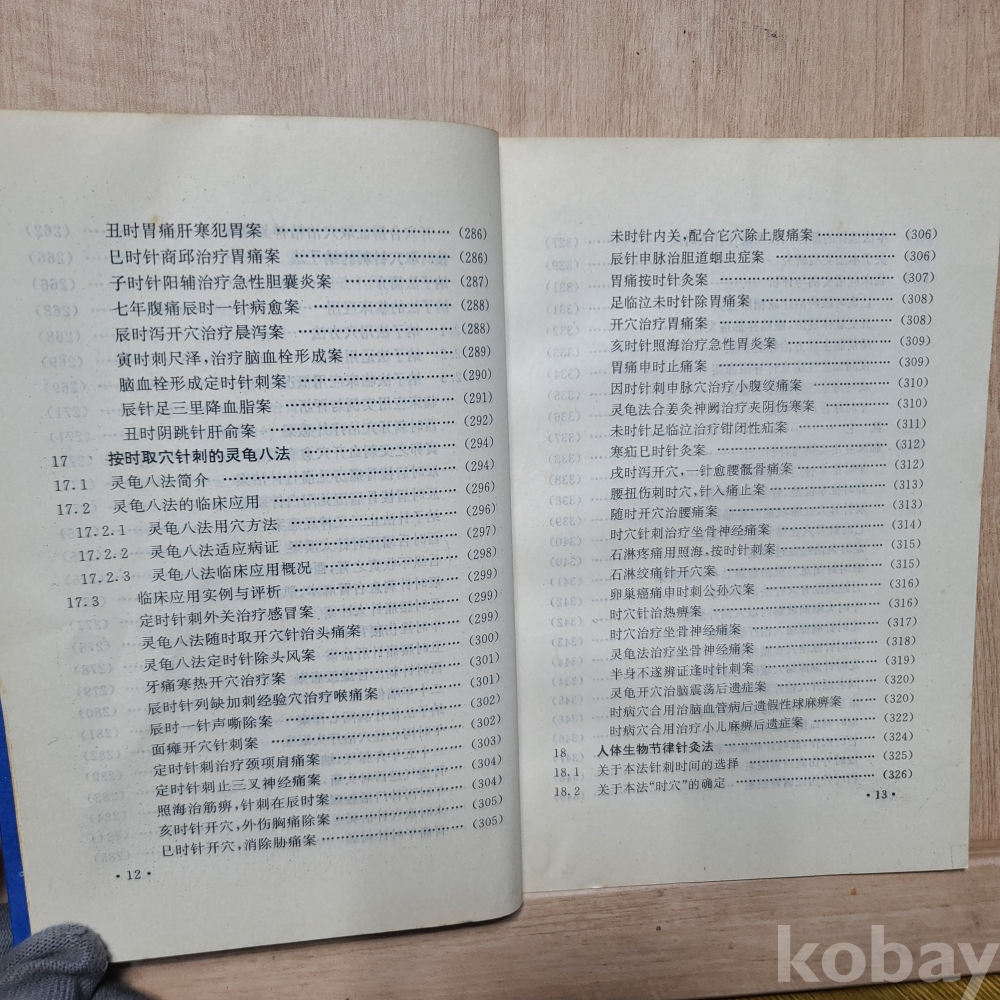 丑时胃痛肝寒犯胃案 ……………………… (286)
巳时针商邱治疗胃痛案 ……………………… (286)
子时针阳辅治疗急性胆囊炎案 ……………………… (287)
七年腹痛辰时一针病愈案 ……………………… (288)
辰时泻开穴治疗晨泻案 ……………………… (288)
寅时刺尺泽,治疗脑血栓形成案 ……………………… (289)
脑血栓形成定时针刺案 ……………………… (290)
辰针足三里降血脂案 ……………………… (291)
丑时阴跳针肝俞案 ……………………… (292)
17 按时取穴针刺的灵龟八法 ……………………… (294)
17.1 灵龟八法简介 ……………………… (294)
17.2 灵龟八法的临床应用 ……………………… (296)
17.2.1 灵龟八法用穴方法 ……………………… (296)
17.2.2 灵龟八法适应病证 ……………………… (297)
17.2.3 灵龟八法临床应用概况 ……………………… (298)
17.3 临床应用实例与评析 ……………………… (299)
定时针刺外关治疗感冒案 ……………………… (299)
灵龟八法随时取开穴针治头痛案 ……………………… (299)
灵龟八法定时针除头风案 ……………………… (300)
牙痛寒热开穴治疗案 ……………………… (301)
辰时针列缺加刺经验穴治疗喉痛案 ……………………… (301)
辰时一针声嘶除案 ……………………… (302)
面瘫开穴针刺案 ……………………… (302)
定时针刺治疗颈项肩痛案 ……………………… (303)
定时针刺止三叉神经痛案 ……………………… (304)
照海治筋痹,针刺在辰时案 ……………………… (304)
亥时针开穴,外伤胸痛除案 ……………………… (305)
巳时针开穴,消除胁痛案 ……………………… (305)
·12·
未时针内关,配合它穴除止腹痛案 ……………………… (306)
辰针申脉治胆道蛔虫症案 ……………………… (306)
胃痛按时针灸案 ……………………… (307)
足临泣未时针除胃痛案 ……………………… (308)
开穴治疗胃痛案 ……………………… (308)
亥时针照海治疗急性胃炎案 ……………………… (309)
胃痛申时止痛案 ……………………… (309)
因时针刺申脉穴治疗小腹绞痛案 ……………………… (310)
灵龟法合姜灸神阙治疗夹阴伤寒案 ……………………… (310)
未时针足临泣治疗钳闭性疝案 ……………………… (311)
寒疝巳时针灸案 ……………………… (312)
戌时泻开穴,一针愈腰骶骨痛案 ……………………… (312)
腰扭伤刺时穴,针入痛止案 ……………………… (313)
随时开穴治腰痛案 ……………………… (313)
时穴针刺治疗坐骨神经痛案 ……………………… (314)
石淋疼痛用照海,按时针刺案 ……………………… (315)
石淋绞痛针开穴案 ……………………… (315)
卵巢癌痛申时刺公孙穴案 ……………………… (316)
时穴针治热痹案 ……………………… (316)
时穴治疗坐骨神经痛案 ……………………… (317)
灵龟法治疗坐骨神经痛案 ……………………… (318)
半身不遂辨证逢时针刺案 ……………………… (319)
灵龟开穴治脑震荡后遗症案 ……………………… (320)
时病穴合用治脑血管病后遗假性球麻痹案 ……………………… (320)
时病穴合用治疗小儿麻痹后遗症案 ……………………… (322)
18 人体生物节律针灸法 ……………………… (324)
18.1 关于本法针刺时间的选择 ……………………… (325)
18.2 关于本法“时穴”的确定 ……………………… (326)
·13·
kobay